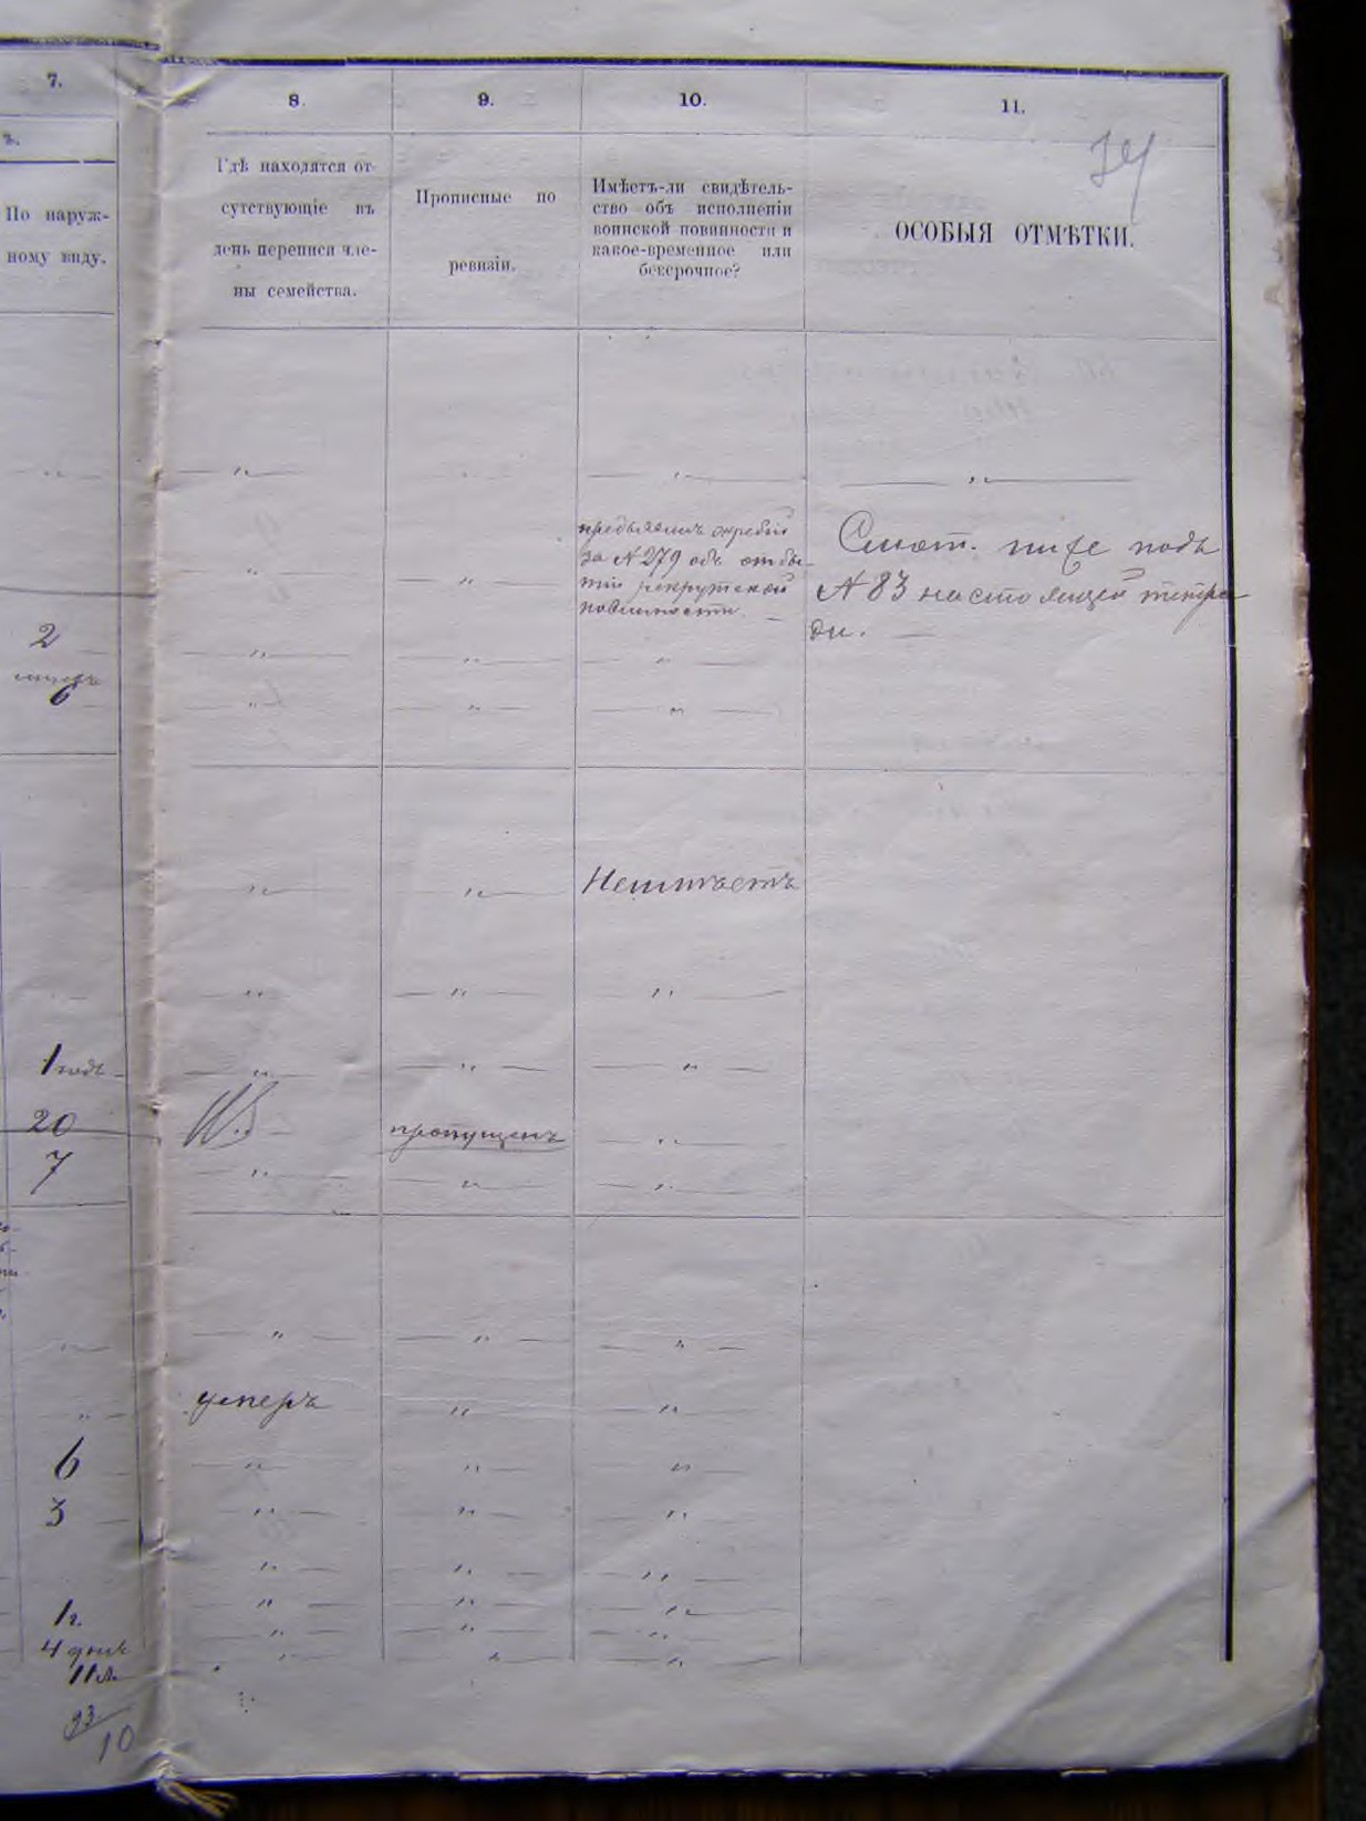 7.
8.
9.
10.
11.
По наруж-
ному виду.
Гдѣ находятся от-
сутствующіе въ
день переписи чле-
ны семейства.
Прописные по
ревизіи.
Имѣетъ-ли свидѣтель-
ство объ исполненіи
воинской повинности и
какое-временное или
безсрочное?
ОСОБЫЯ ОТМѢТКИ.
за № 279 объ отбы-
тіи рекрутской
повинности
Смот. ниже подъ
№ 83 настоящей тетра
ди.
2
6
Неимѣетъ
1 годъ
20
пропущенъ
7
умеръ
6
3
1 г.
4 дня
11 л.
93
10